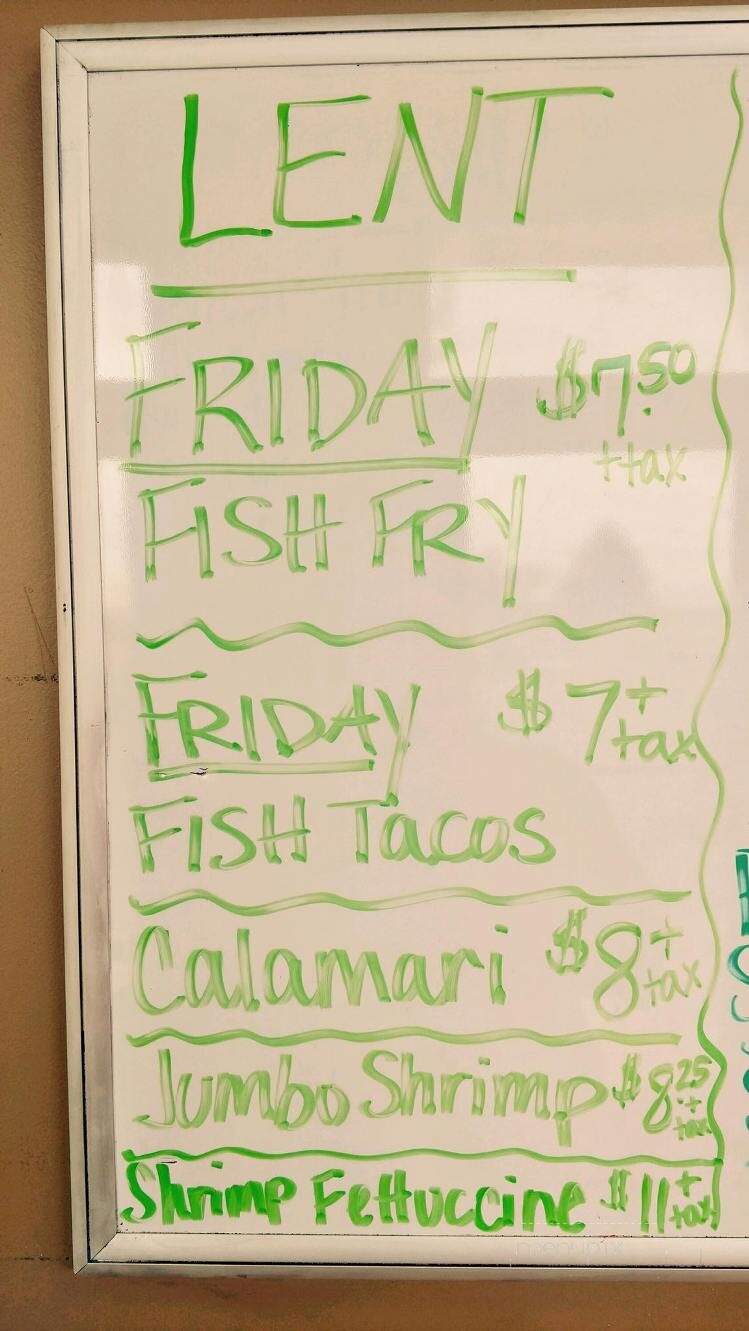 LENT
FRIDAY $7.50
+tax
FISH FRY
FRIDAY $7+
tax
FISH Tacos
Calamari $8+
tax
Jumbo Shrimp $8.25
+
tax
Shrimp Fettuccine $11+
tax